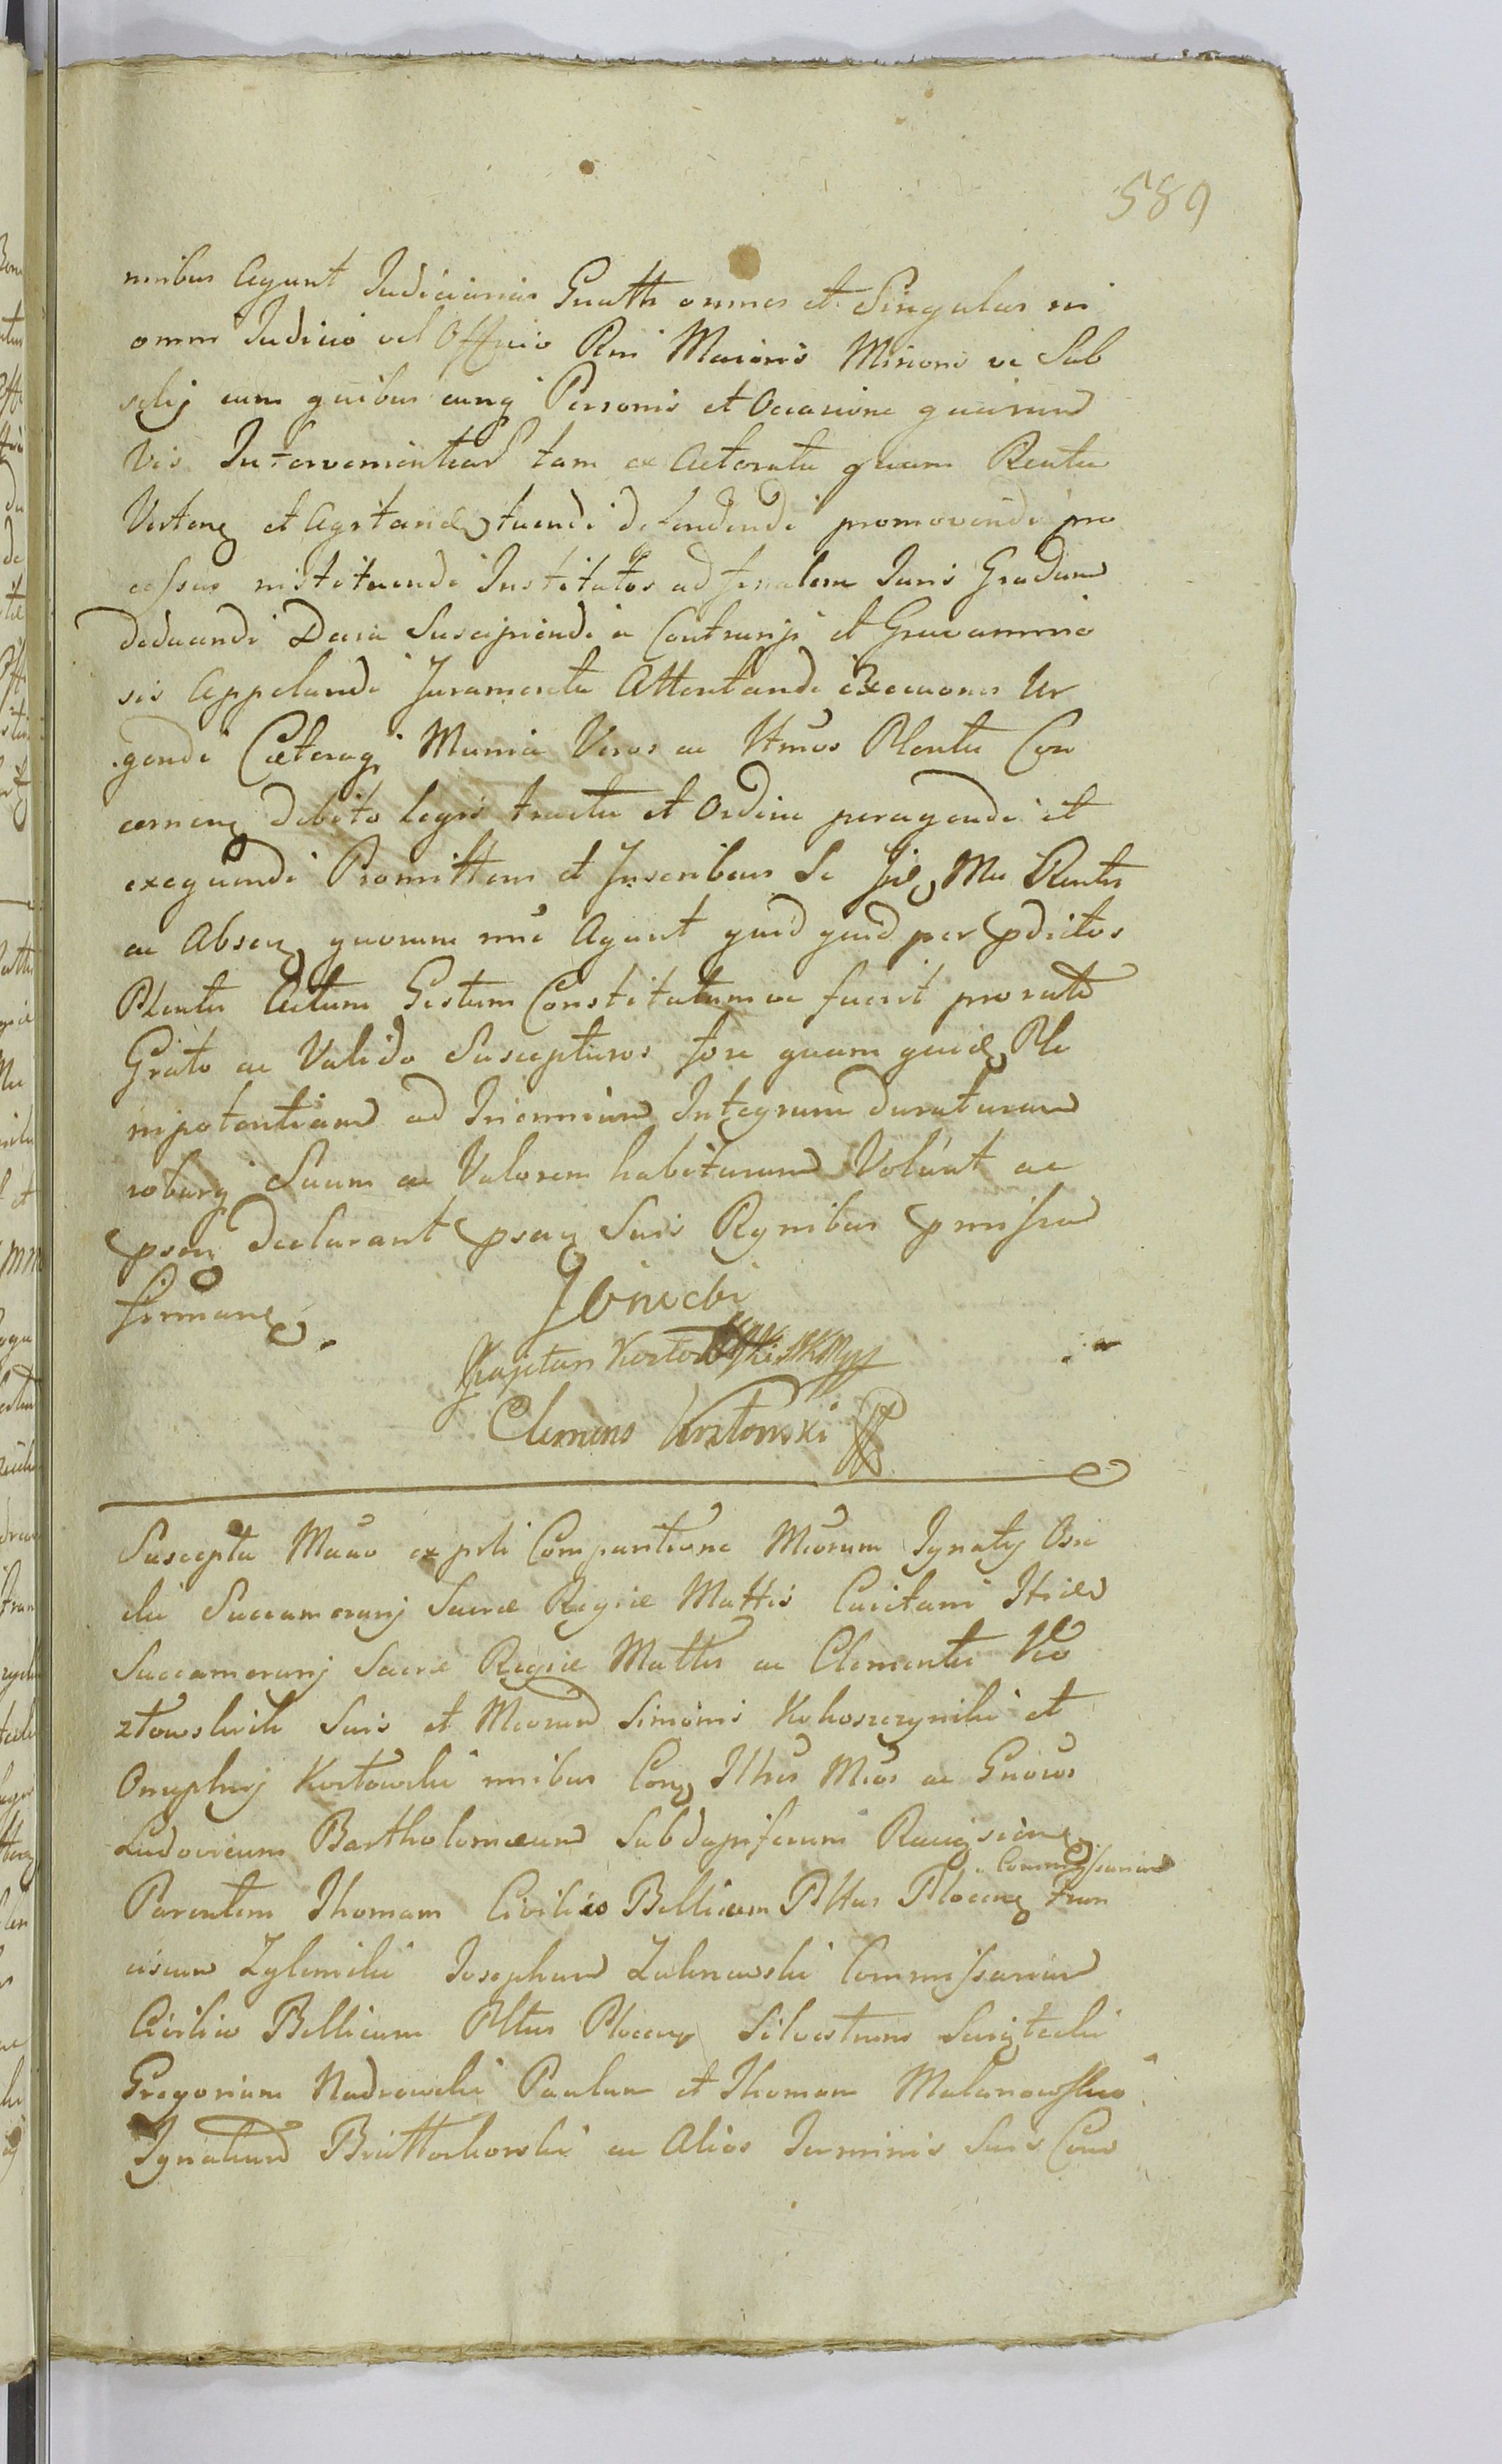 589
nnibus Agunt Judiciarias Gnatts omnes et Singulas in
omni Judicio vel Officio Rni Maioris Minoris ve Sub
selij cum quibus cunq Personis et Occasione quarum
vis Intervenientiad tam ex Actoratu quam Reatu
Verten et Agitand tuendi defendendi promovendi pro
cessus instituendi Institutos ad finalem Juris Gradum
deducendi Decia Suscipiendi a Contrarijs et Gravamino
sis Appelandi Juramenta Attentandi Execuones Ur
gendi Cæteraq Munia Veros ac Ltmos Plentes Con
cernen debito legis tractu et Ordine peragendi et
exequendi Promittens et Inscribens Se Mu Plentes
ac Absen quorum nne Agunt quid quid per pdictos
Plentes Actum Gestum Constitutum ve fuerit pro rato
Grato ac Valido Suscepturos fore quam quid Ple
nipotentiam ad Triennium Integrum duraturam
roburq Suum ac Valorem habituram Volunt ac
psen declarant psenq Suis Rgnibus pmissa
firman.
Kajetan Kozłowski
Clemens Kozłowski
Suscepta Mano ex prli Comparitione Mcorum Ignatij Osie
cki Succamerarij Sacræ Regiæ Mattis Caietani
Succamerarij Sacræ Regiæ Mattis ac Clementis Ko
złowskich Suis et Mcorum Simonis Kokoszczynski et
Onuphrij Kozłowski nnibus Con Illres Mcos ac Gnosos
Ludovicum Bartholomæum Subdapiferum Raciązien
Commissarium
Parentem Thomam Civilio Bellicum Pltus Plocen Fran
ciscum Zylinski Josephum Zalenawski Commissarium
Civilio Bellicum Pltus Plocen Silvestrum
Gregorium Nadrowski Paulum et Thomam Malanowskie
Ignatium ac Alios Terminis Suis Conv